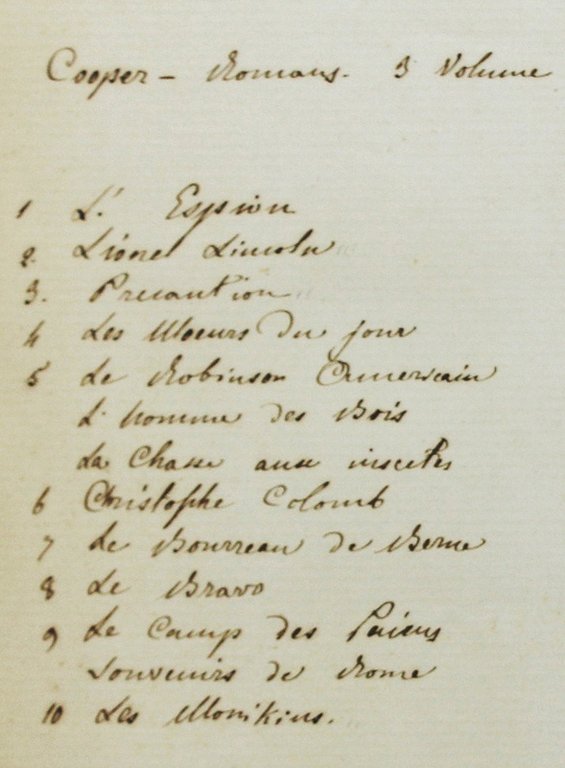 Cooper - Romans. 3 Volume
1 L'Espion
2. Lionel Lincoln
3. Precaution
4 Les Moeurs Du jour
5 Le Robinson Americain
L'homme des Bois
La Chasse aux insectes
6 Christophe Colomb
7 Le Bourreau de Berne
8 Le Bravo
9 Le Camp des Paiens
Souvenirs de Rome
10 Les Monikins.